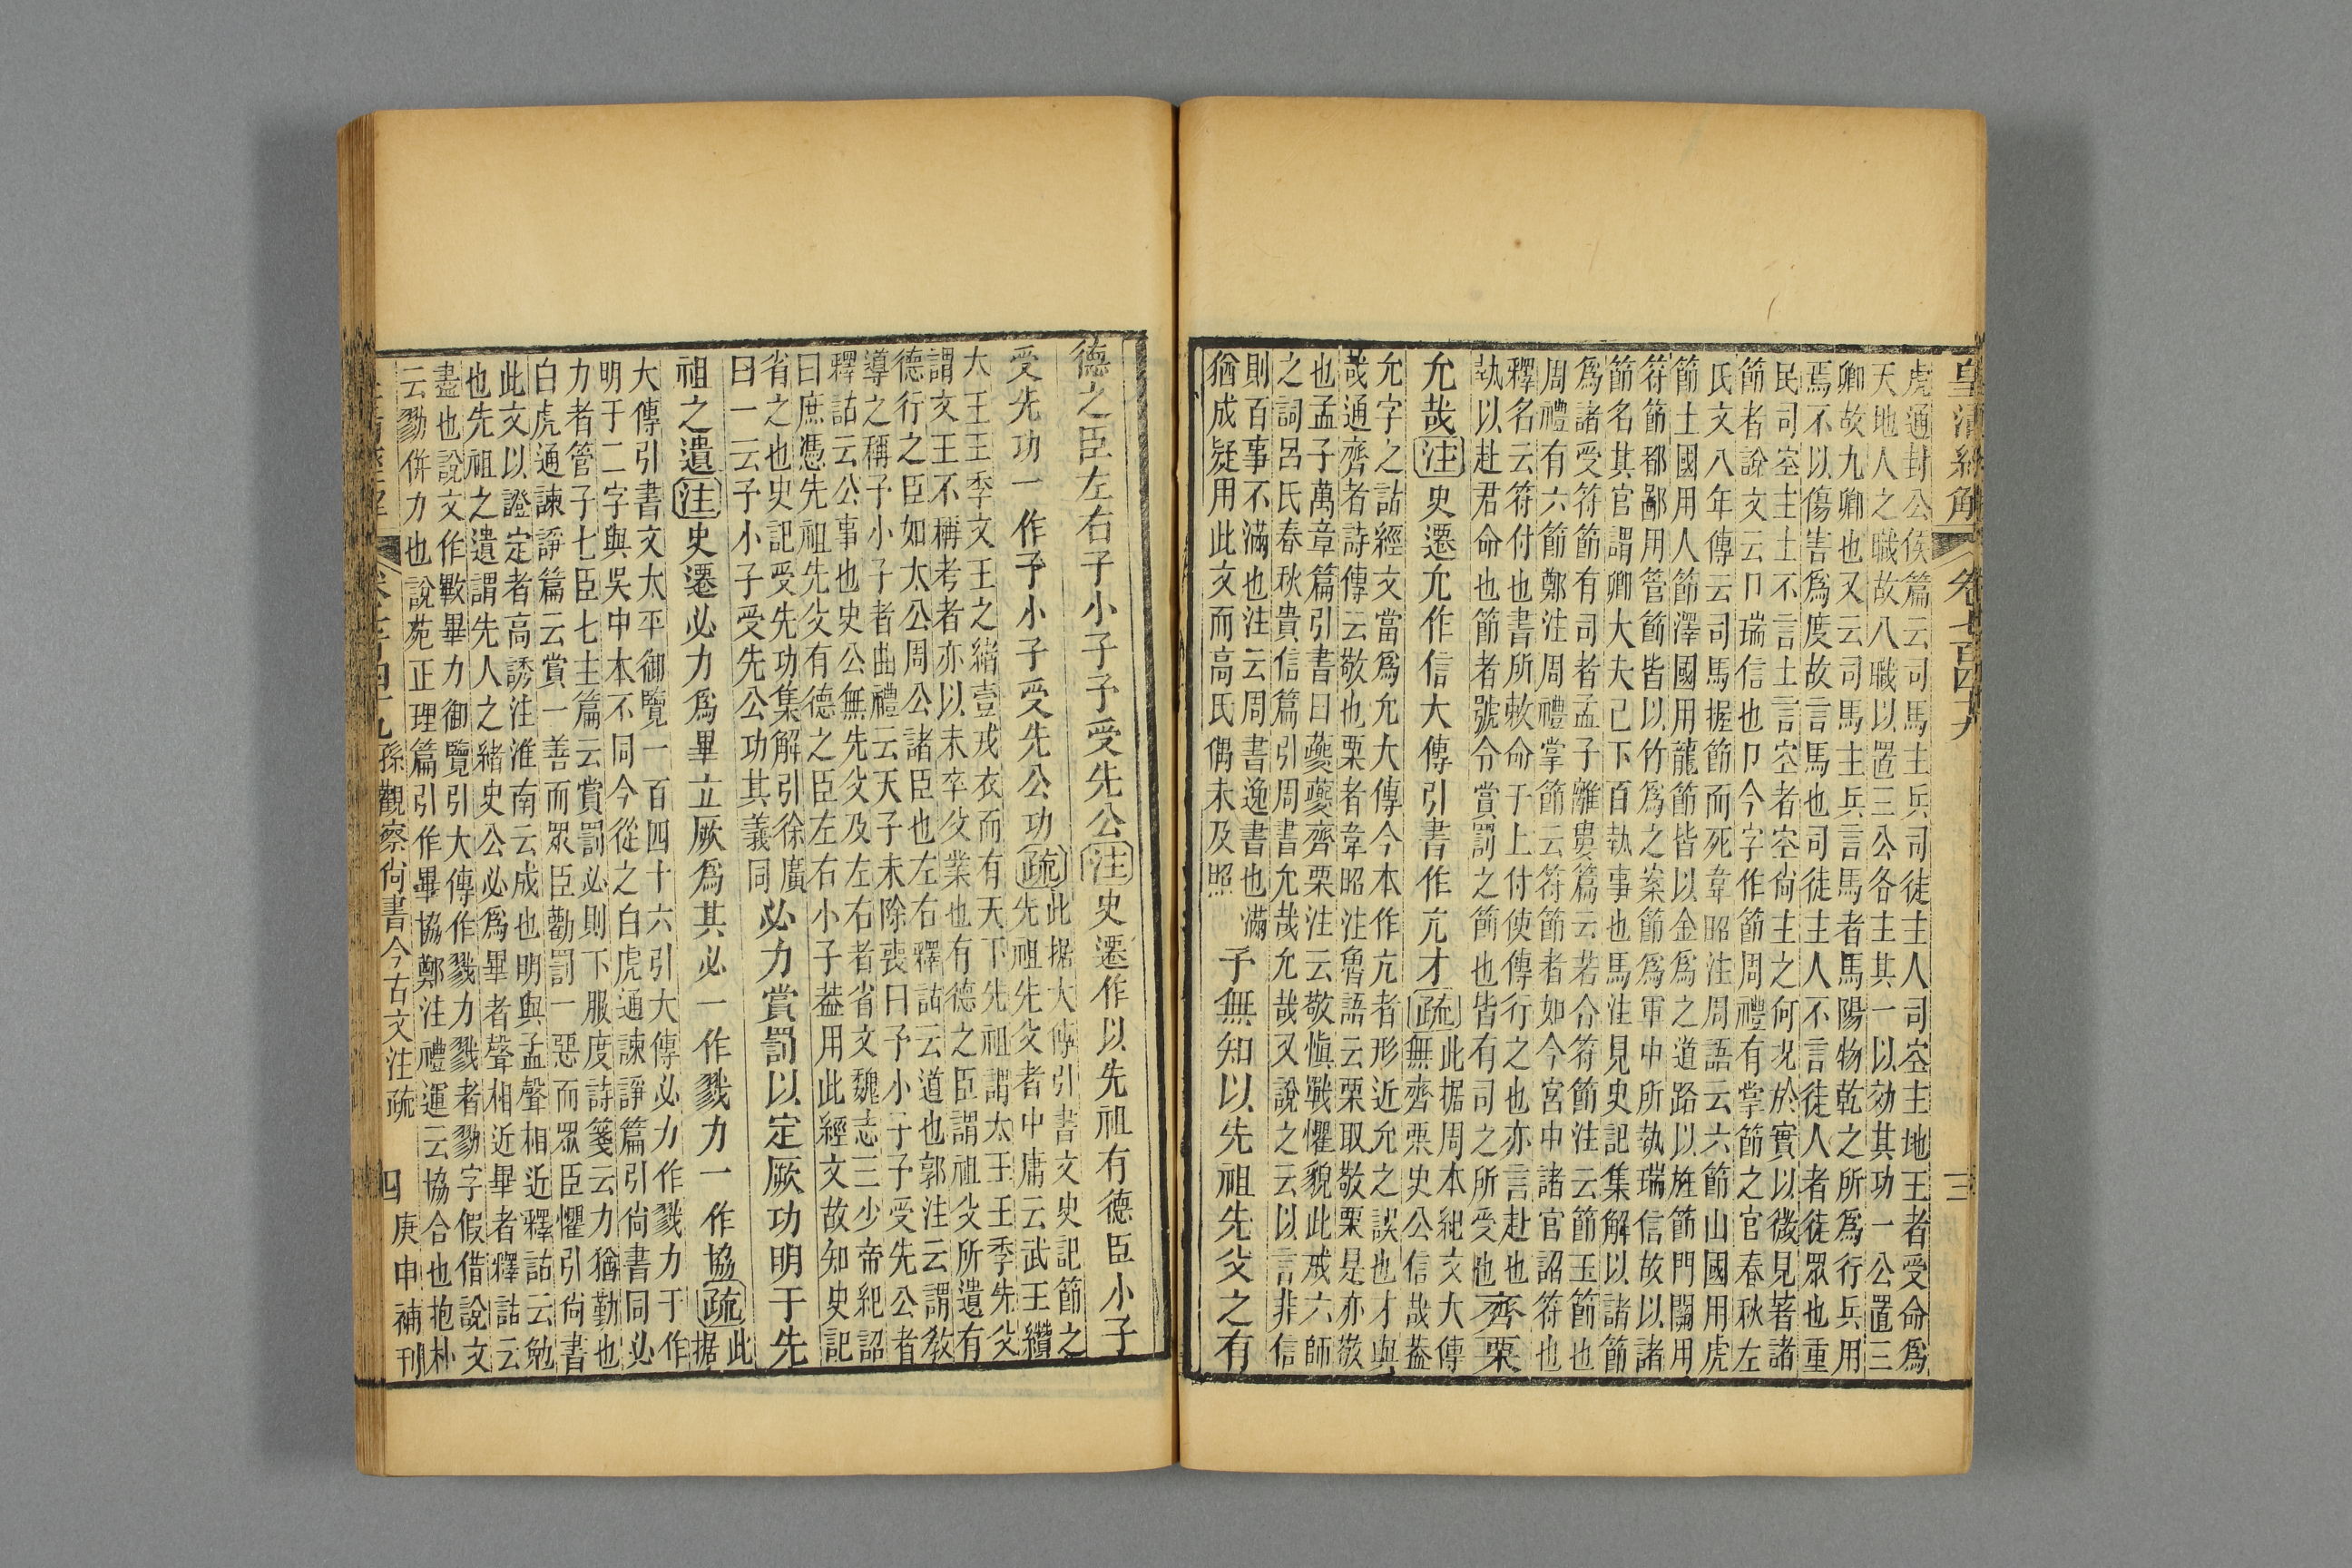 皇清經解 卷七百四十九 三
虎通封公侯篇云司馬主兵司徒主人司空主地王者受命爲
天地人之職故八職以置三公各主其一以效其功一公置三
卿故九卿也又云司馬主兵言馬者馬陽物乾之所爲行兵用
焉不以傷害爲度故言馬也司徒主人不言徒人者徒眾也重
民司空主土不言土言空者空尙主之何況於實以微見著諸
節者說文云卩瑞信也卩今字作節周禮有掌節之官春秋左
氏文八年傳云司馬握節而死韋昭注周語云六節山國用虎
節土國用人節澤國用龍節皆以金爲之道路以旌節門關用
符節都鄙用管節皆以竹爲之案節爲軍中所執瑞信故以諸
節名其官謂卿大夫已下百執事也馬注見史記集解以諸節
爲諸受符節有司者孟子離婁篇云若合符節注云節玉節也
周禮有六節鄭注周禮掌節云符節者如今宮中諸官詔符也
釋名云符付也書所敕命于上付使傳行之也亦言赴也
執以赴君命也節者號令賞罰之節也皆有司之所受也 齊栗
允哉注史遷允作信大傳引書作亢才疏此据周本紀文大傳
無齊栗史公信哉葢
允字之詁經文當爲允大傳今本作亢者形近允之誤也才與
哉通齊者詩傳云敬也栗者韋昭注魯語云栗取敬栗是亦敬
也孟子萬章篇引書曰夔夔齊栗注云敬愼戰懼貌此戒六師
之詞呂氏春秋貴信篇引周書允哉允哉又說之云以言非信
則百事不滿也注云周書逸書也滿
猶成疑用此文而高氏偶未及照 予無知以先祖先父之有
德之臣左右予小子予受先公注史遷作以先祖有德臣小子
受先功一作予小子受先公功疏此据大傳引書文史記節之
先祖先父者中庸云武王纘
大王王季文王之緒壹戎衣而有天下先祖謂太王王季先父
謂文王不稱考者亦以未卒父業也有德之臣謂祖父所遺有
德行之臣如太公周公諸臣也左右釋詁云道也郭注云謂敎
導之稱子小子者曲禮云天子未除喪曰予小子予受先公者
釋詁云公事也史公無先父及左右者省文魏志三少帝紀詔
曰庶憑先祖先父有德之臣左右小子葢用此經文故知史記
省之也史記受先功集解引徐廣
曰一云予小子受先公功其義同 必力賞罰以定厥功明于先
祖之遺注史遷必力爲畢立厥爲其必一作戮力一作協疏此
据
大傳引書文太平御覽一百四十六引大傳必力作戮力于作
明于二字與吳中本不同今從之白虎通諫諍篇引尙書同必
力者管子七臣七主篇云賞罰必則下服度詩箋云力猶勤也
白虎通諫諍篇云賞一善而眾臣勸罰一惡而眾臣懼引尙書
此文以證定者高誘注淮南云成也明與孟聲相近釋詁云勉
也先祖之遺謂先人之緒史公必爲畢者聲相近畢者釋詁云
盡也說文作斁畢力御覽引大傳作戮力戮者勠字假借說文
云勠併力也說苑正理篇引作畢協鄭注禮運云協合也抱朴
孫觀察尙書今古文注疏 四 庚申補刊